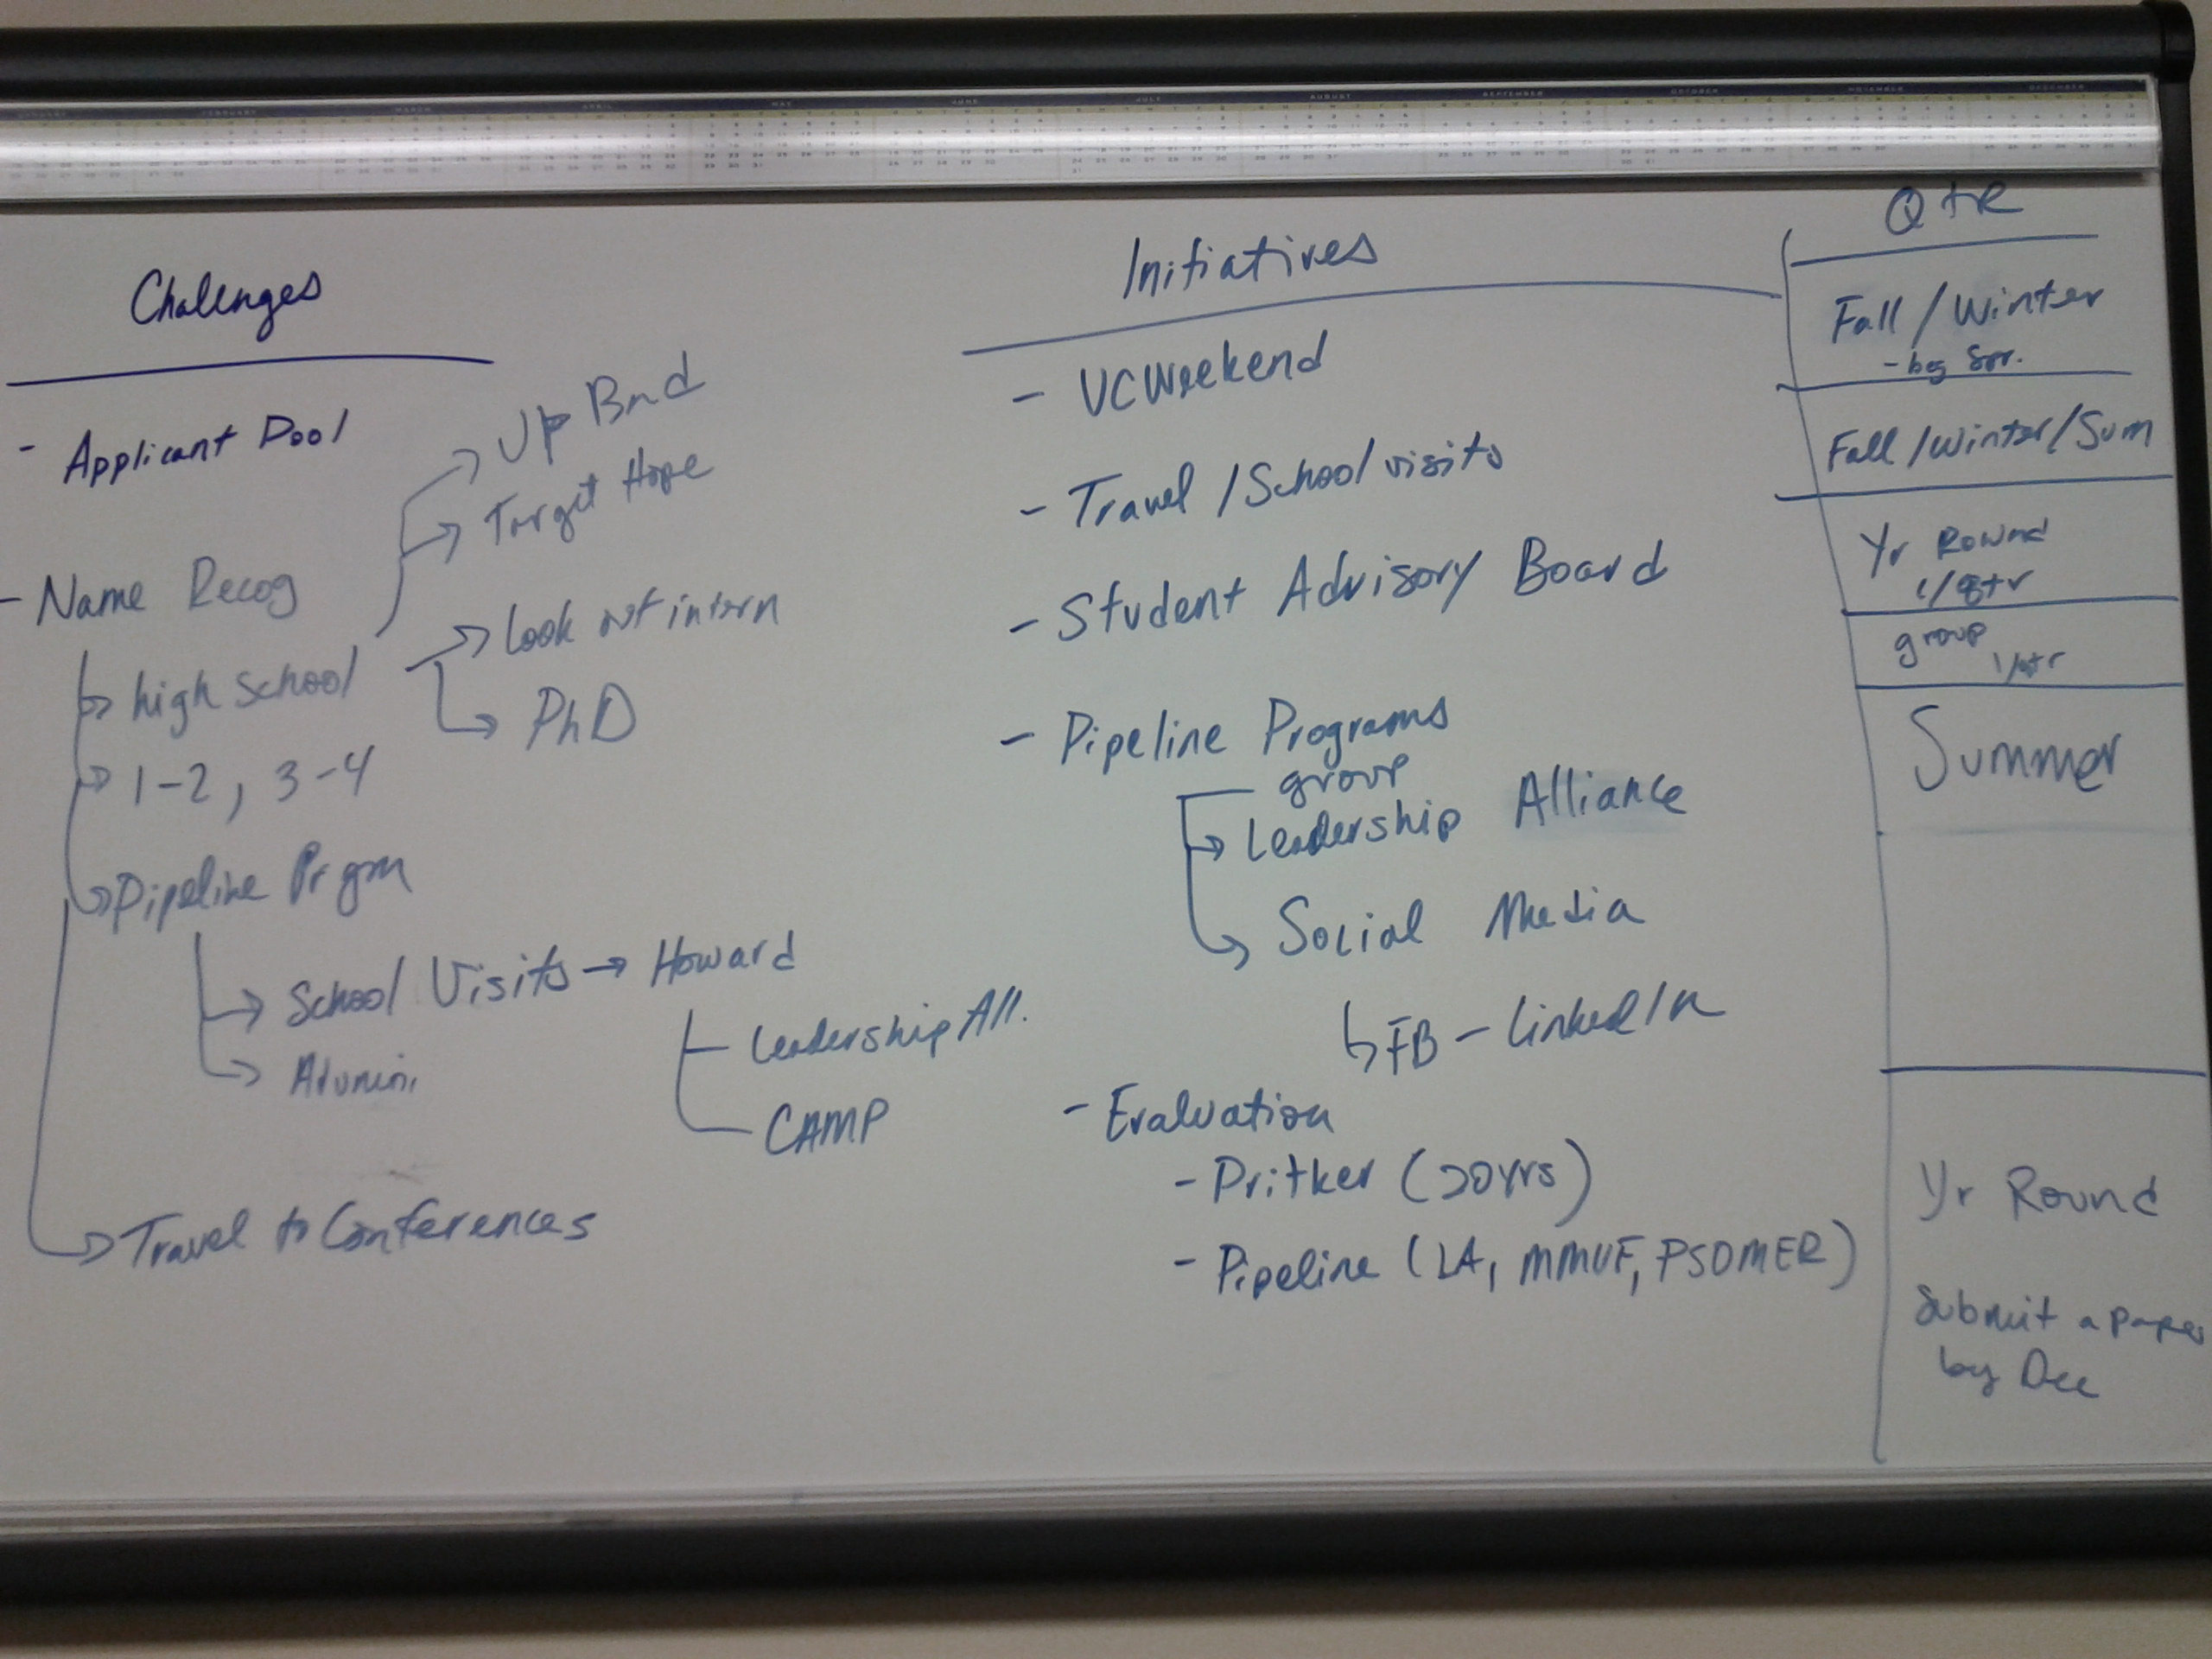 JANUARY FEBRUARY MARCH APRIL MAY JUNE JULY AUGUST SEPTEMBER OCTOBER NOVEMBER DECEMBER
Challenges
- Applicant Pool
- Name Recog
high school
Up Bnd
Target Hope
Look out intern
PhD
1-2, 3-4
Pipeline Prgm
School Visits → Howard
Leadership All.
CAMP
Alumini
Travel to Conferences
Initiatives
- UCWeekend
- Travel / School visits
- Student Advisory Board
- Pipeline Programs
group
Leadership Alliance
Social Media
FB - LinkedIn
- Evaluation
- Pritker (20yrs)
- Pipeline (LA, MMUF, PSOMER)
QtR
Fall / Winter
- beg Spr.
Fall / Winter / Sum
Yr Round
1/qtr
group
1/qtr
Summer
Yr Round
Submit a paper
by Dec